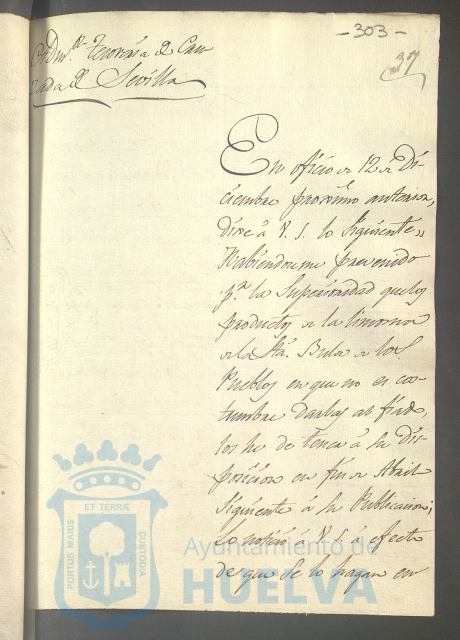 -303-
37
Tesorería de Cru-
zada de Sevilla
En oficio de 12 de Di-
ciembre proximo anterior,
dixe á V. S. lo siguiente„
Habiendoseme prevenido
pr. la Superioridad que los
productos de la limosna
de la Sta. Bula de los
Pueblos en que no es cos-
tumbre darlas al fiado,
los he de tener á su dis-
posicion en fin de Abril
siguiente á la Publicacion;
Lo noticio á V. S. á efecto
de que se lo hagan en
PORTUS MARIS ET TERRÆ CUSTODIA
Ayuntamiento de
HUELVA